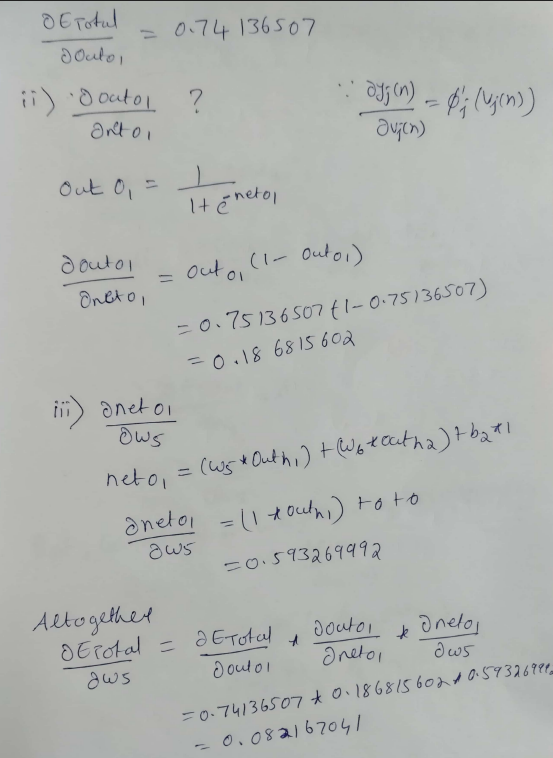 ∂ETotal/∂outo₁ = 0.74136507
ii) ∂outo1/∂neto1 ? ∵ ∂yj(n)/∂vj(n) = φ'j (vj(n))
out o₁ = 1/(1+e^-neto1)
∂outo1/∂neto1 = outo₁ (1- outo1)
= 0.75136507 (1-0.75136507)
= 0.186815602
iii) ∂neto1/∂w5
neto₁ = (w5 * outh₁) + (w6 * outh2) + b₂*1
∂neto1/∂w5 = (1 * outh₁) + 0 + 0
= 0.593269992
Altogether
∂ETotal/∂w5 = ∂ETotal/∂outo1 * ∂outo1/∂neto1 * ∂neto1/∂w5
= 0.74136507 * 0.186815602 * 0.593269992
= 0.082167041